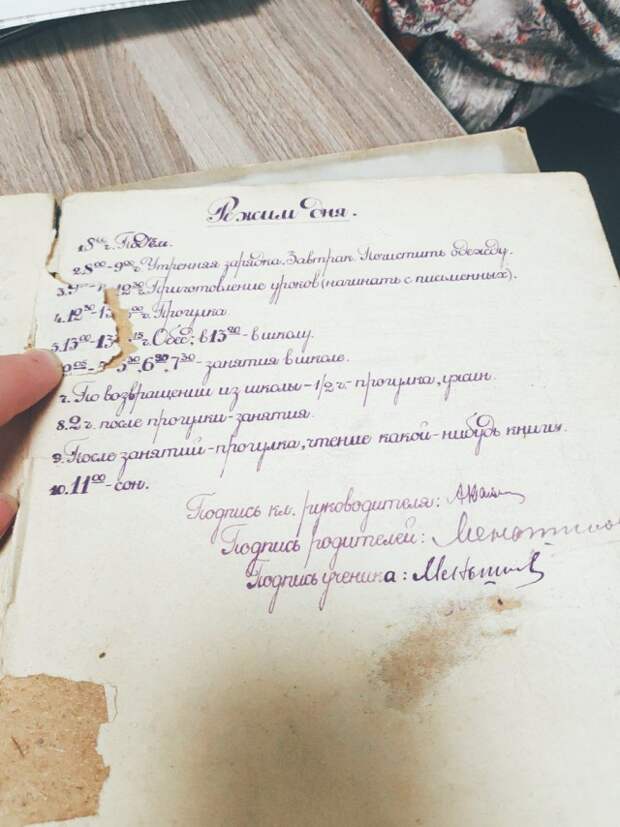 Режим дня.
1. 8⁰⁰ ч. Подъем.
2. 8⁰⁰-9⁰⁰ч Утренняя зарядка. Завтрак. Почистить одежду.
3. 12³⁰ Приготовление уроков (начинать с письменных).
4. 12³⁰- Прогулка
5. 13⁰⁰- Обед; в 13²⁰-в школу.
6³⁰, 7³⁰- занятия в школе.
7. По возвращении из школы-1/2 ч-прогулка, ужин.
8. 2 ч. после прогулки-занятия.
9. После занятий-прогулка, чтение какой-нибудь книги.
10. 11⁰⁰-сон.
Подпись кл. руководителя:
Подпись родителей:
Подпись ученика: Меньшиков